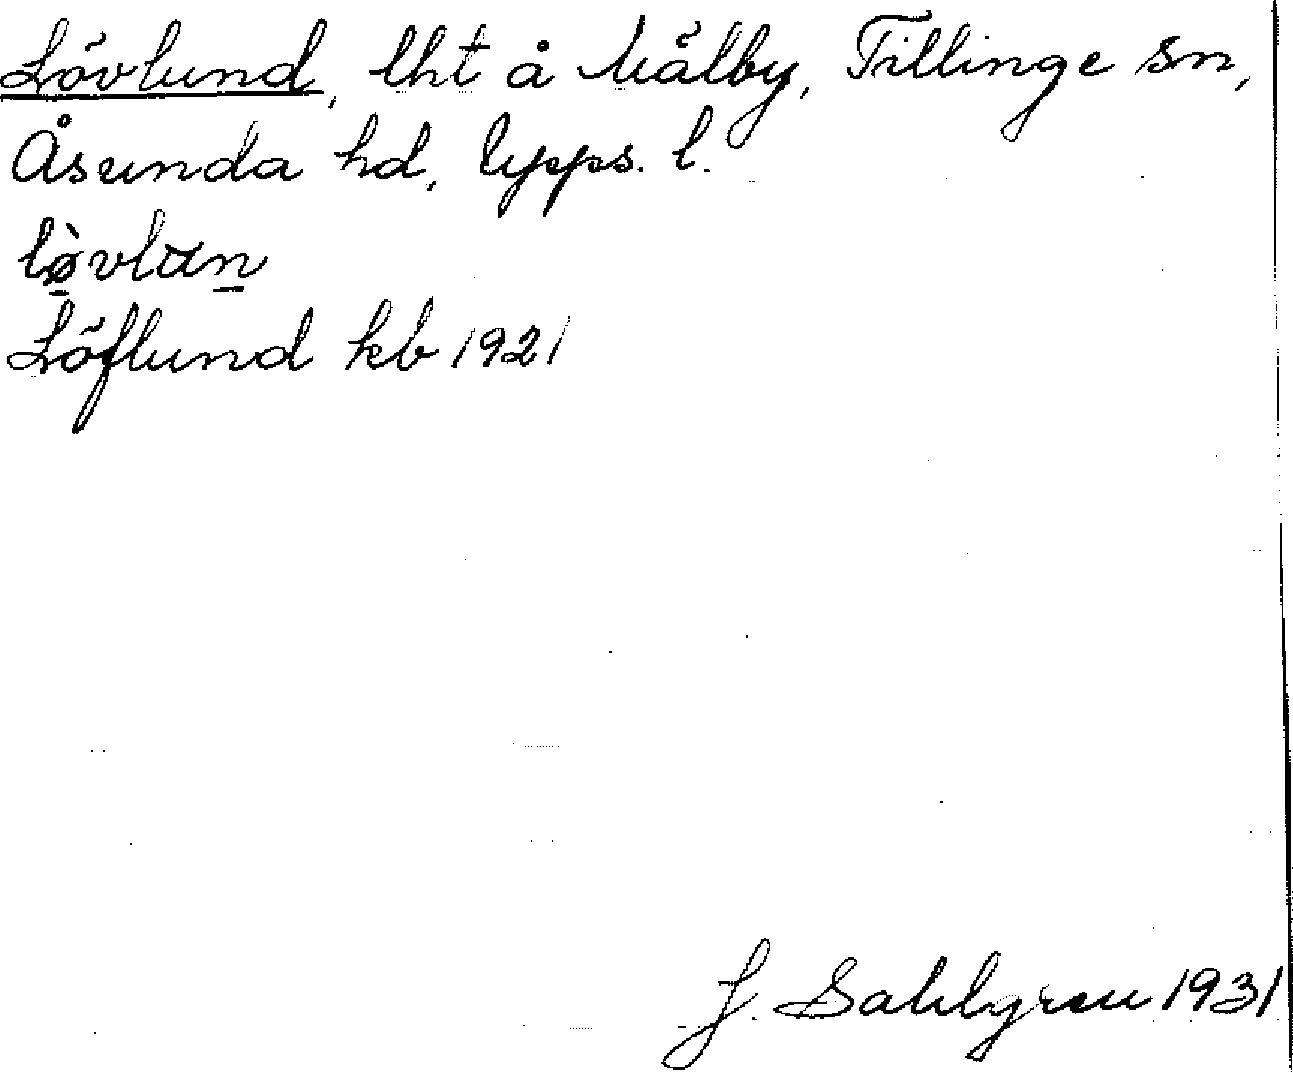 Lövlund, lht å Mälby, Tillinge sn,
Åsunda hd, Upps. l.
lø̀vlun
Löflund kb 1921
J. Sahlgren 1931